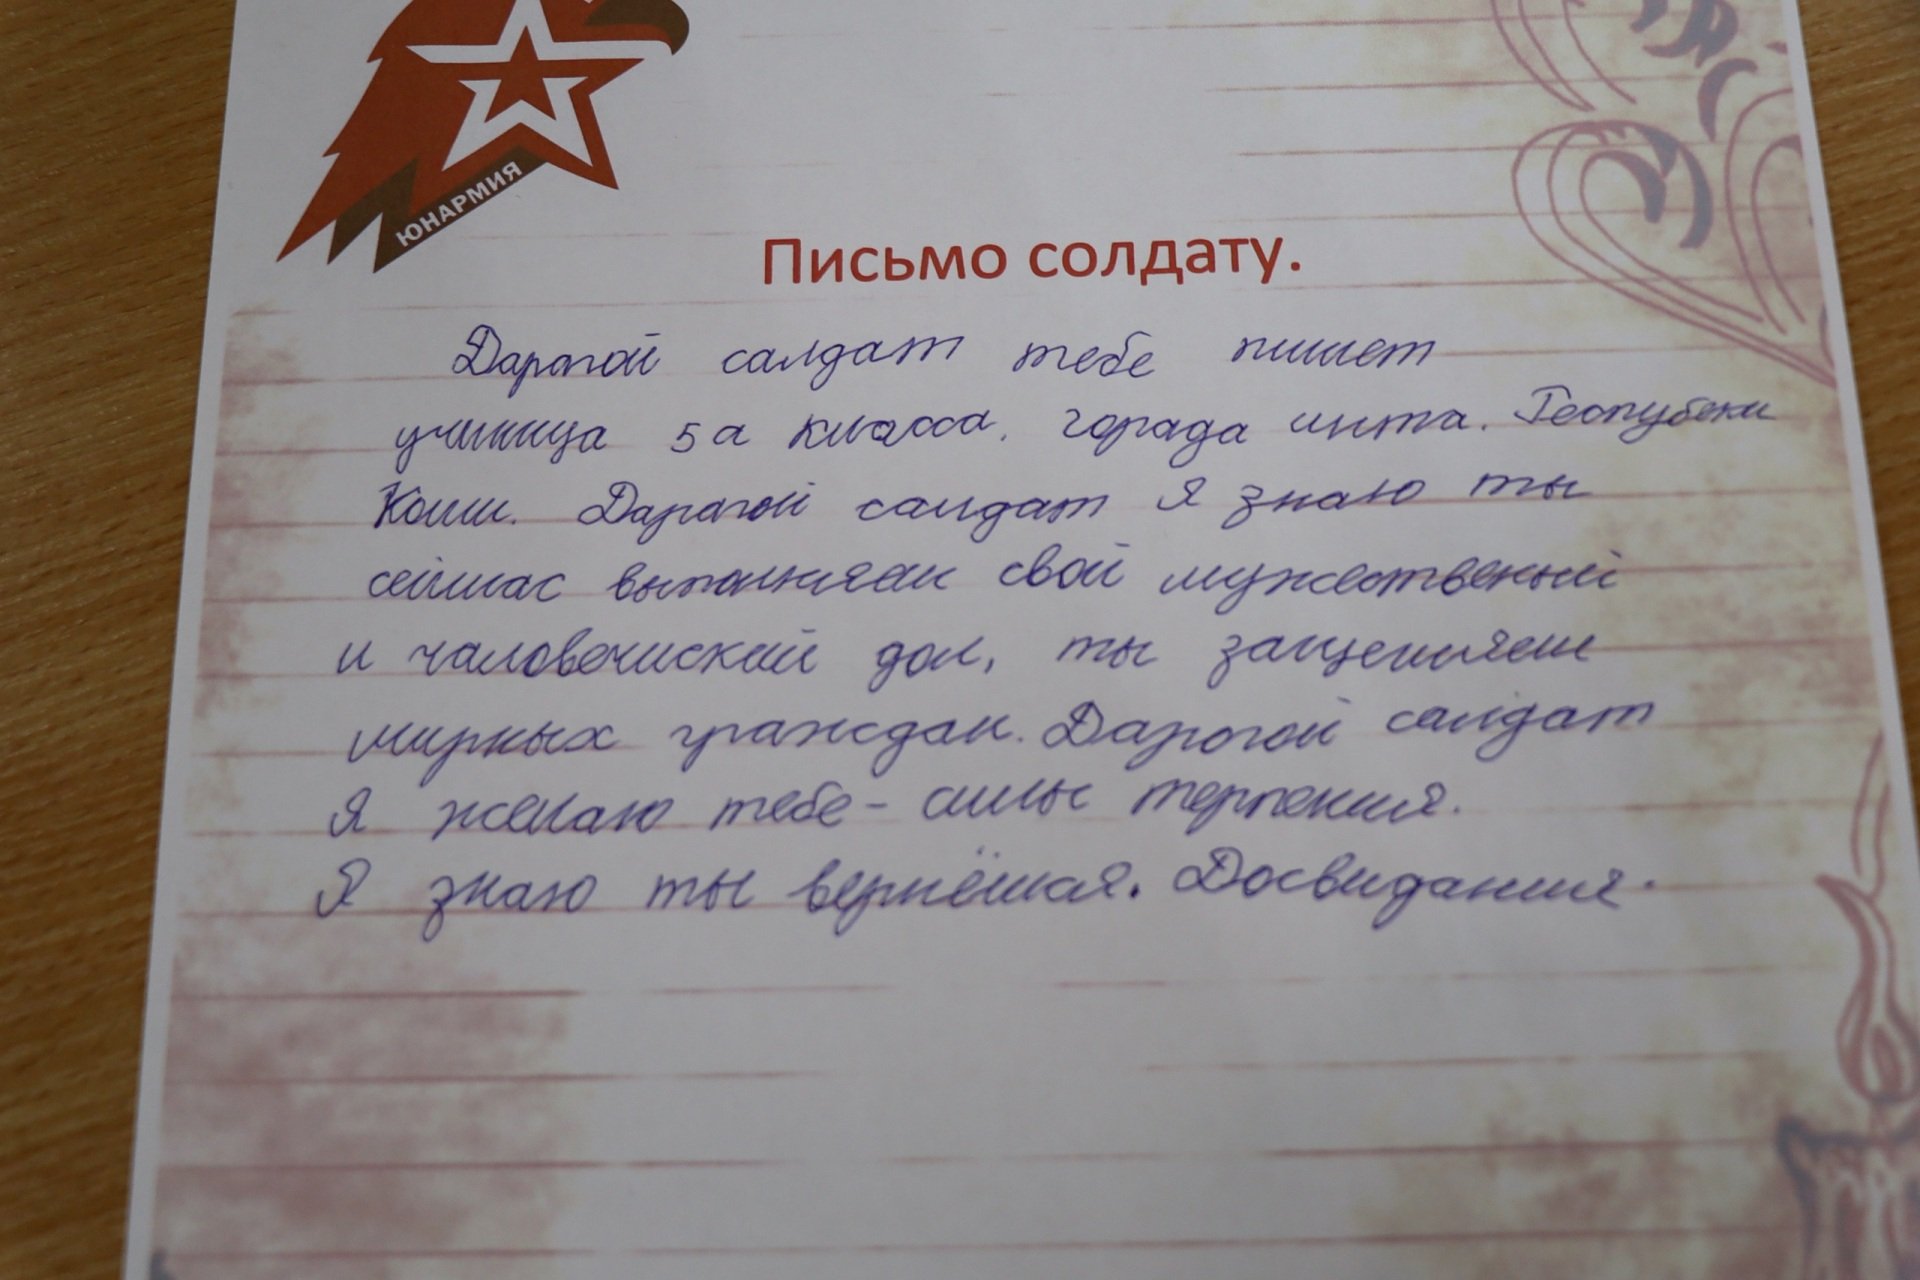 ЮНАРМИЯ
Письмо солдату.
Дарогой салдат тебе пишет
учиница 5а класса. горада инта. Респубеки
Коми. Дарагой салдат я знаю ты
сейчас выполняеш свой мужественый
и чаловечиский дол, ты защеняеш
мирных граждан. Дарогой салдат
я желаю тебе- силы терпения.
Я знаю ты вернёшся. Досвидания.